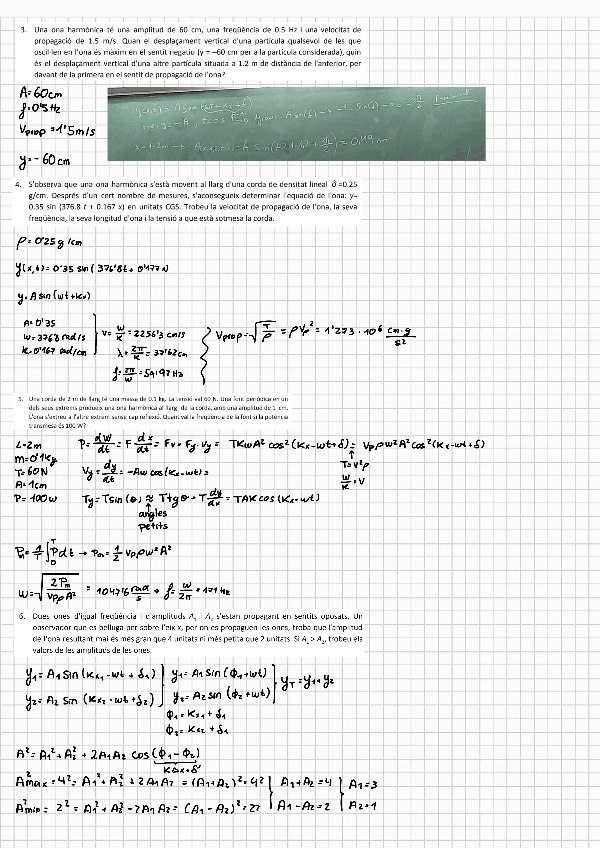 3. Una ona harmònica té una amplitud de 60 cm, una freqüència de 0.5 Hz i una velocitat de
propagació de 1.5 m/s. Quan el desplaçament vertical d'una partícula qualsevol de les que
oscil·len en l'ona és màxim en el sentit negatiu (y = –60 cm per a la partícula considerada), quin
és el desplaçament vertical d'una altre partícula situada a 1.2 m de distància de l'anterior, per
davant de la primera en el sentit de propagació de l'ona?
A=60cm
f=0'5Hz
Vprop=1'5m/s
y=-60cm
4. S'observa que una ona harmònica s'està movent al llarg d'una corda de densitat lineal δ=0.25
g/cm. Després d'un cert nombre de mesures, s'aconsegueix determinar l'equació de l'ona: y=
0.35 sin (376.8 t + 0.167 x) en unitats CGS. Trobeu la velocitat de propagació de l'ona, la seva
freqüència, la seva longitud d'ona i la tensió a que està sotmesa la corda.
ρ=0'25g/cm
y(x,t)=0'35 sin(376'8t+0'177x)
y=A sin(wt+kx)
A=0'35
w=376'8 rad/s
K=0'167 rad/cm
v=w/K=2256'3 cm/s
λ=2π/K=37'62cm
f=2π/w=59'97Hz
Vprop=√(T/ρ) = ρVp²=1'273·10⁶ cm·g/s²
5. Una corda de 2 m de llarg té una massa de 0.1 kg. La tensió val 60 N. Una font periòdica en un
dels seus extrems produeix una ona harmònica al llarg de la corda, amb una amplitud de 1 cm.
L'ona s'extreu a l'altre extrem sense cap reflexió. Quant val la freqüència de la font si la potència
transmesa és 100 W?
L=2m
m=0'1Kg
T=60N
A=1cm
P=100w
P=dW/dt=F dx/dt=Fv=Fy·Vy= TKwA²cos²(Kx-wt+δ)=Vpρw²A²cos²(Kx-wt+δ)
T=v²ρ
w/K=V
Vy=dy/dt=-Aw cos(Kx-wt)
Ty=Tsin(θ)≈Ttgθ=T dy/dx=TAK cos(Kx-wt)
angles
petits
Pm=1/T∫₀ᵀPdt→Pm=1/2 Vpρw²A²
w=√(2Pm/VpρA²)=1074'6 rad/s→f=w/2π=171Hz
6. Dues ones d'igual freqüència i d'amplituds A₁ i A₂ s'estan propagant en sentits oposats. Un
observador que es belluga per sobre l'eix x, per on es propaguen les ones, troba que l'amplitud
de l'ona resultant mai és més gran que 4 unitats ni més petita que 2 unitats. Si A₁ > A₂, trobeu els
valors de les amplituds de les ones.
y₁=A₁ Sin(Kx₁-wt+δ₁)
y₂=A₂ Sin(Kx₂-wt+δ₂)
y₁=A₁ Sin(ϕ₁+wt)
y₂=A₂ sin(ϕ₂+wt)
yT=y₁+y₂
ϕ₁=Kx₁+δ₁
ϕ₂=Kx₂+δ₁
A²=A₁²+A₂²+2A₁A₂cos(ϕ₁-ϕ₂)
KΔx+δ'
A²max=4²=A₁²+A₂²+2A₁A₂=(A₁+A₂)²=4²
A²min=2²=A₁²+A₂²-2A₁A₂=(A₁-A₂)²=22
A₁+A₂=4
A₁-A₂=2
A₁=3
A₂=1